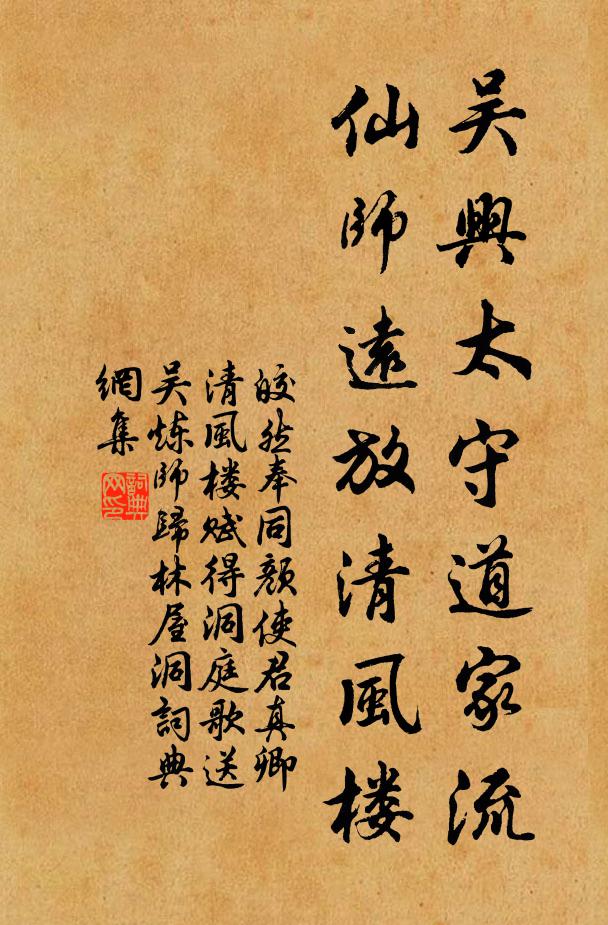 吴興太守道家流
仙師遠放清風楼
皎然奉同顔使君真卿
清風楼赋得洞庭歌送
吴炼師歸林屋洞詞典
網集
詞典網印